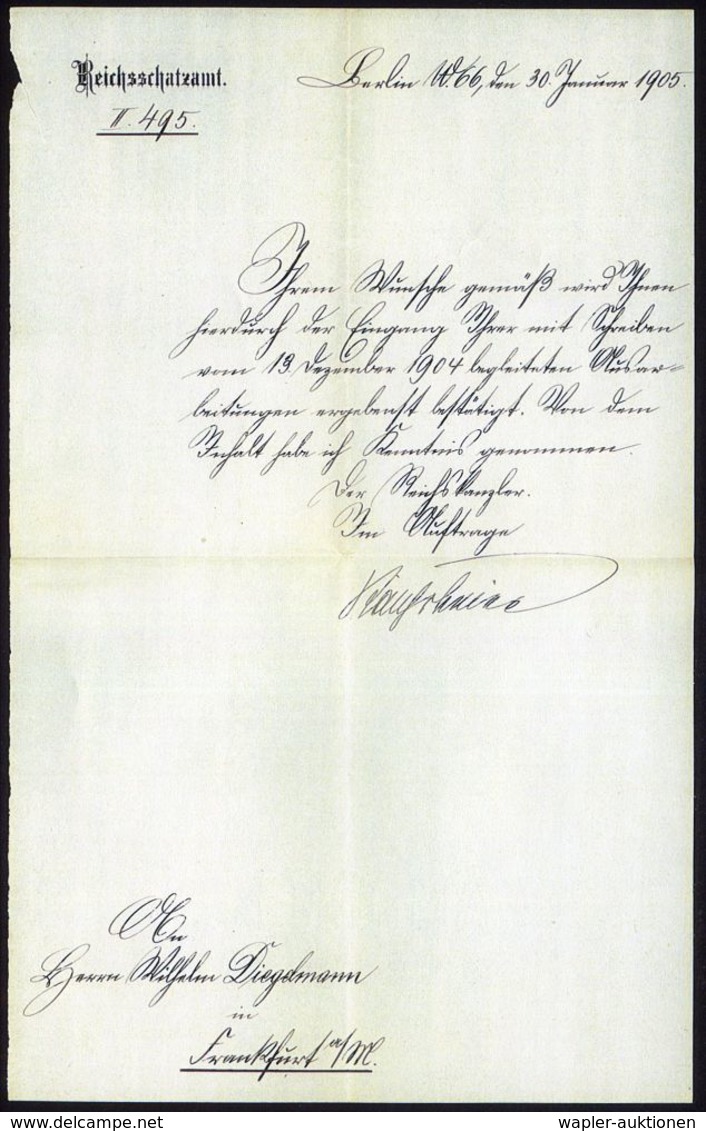 Reichsschatzamt.
Berlin W.66, den 30. Januar 1905.
II. 495.
Ihrem Wunsche gemäß wird Ihnen
hierdurch der Eingang Ihrer mit Schreiben
vom 13. Dezember 1904 begleiteten Ausar=
beitungen ergebenst bestätigt. Von dem
Inhalt habe ich Kenntnis genommen.
Der Reichskanzler.
Im Auftrage
An
Herrn Wilhelm Diegelmann
in
Frankfurt a/M.
(c) wapler-auktionen
wapler-auktionen